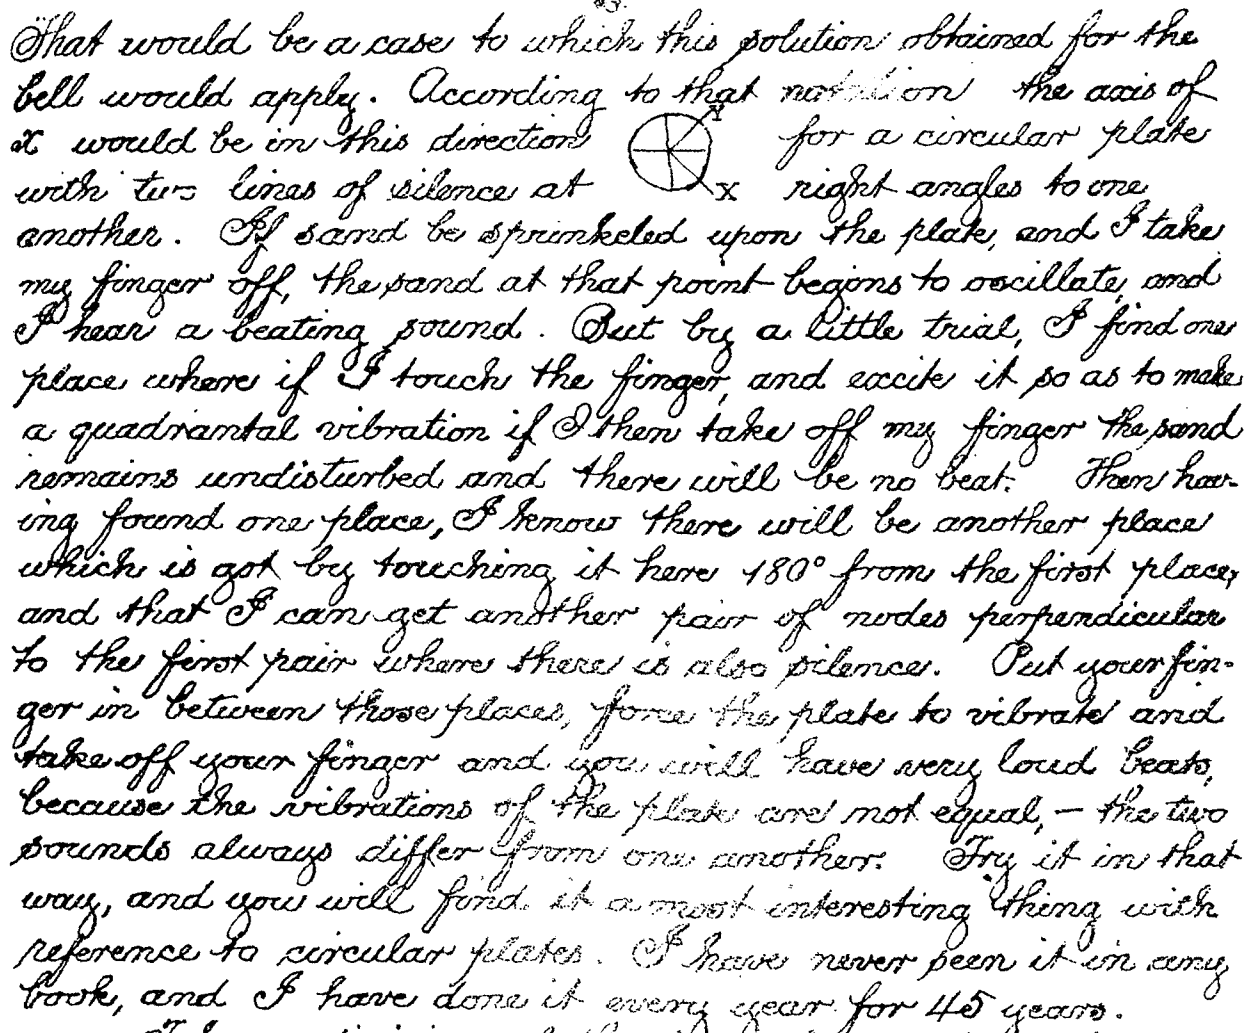 That would be a case to which this solution obtained for the
bell would apply. According to that notation the axis of
x would be in this direction Y for a circular plate
with two lines of silence at X right angles to one
another. If sand be sprinkeled upon the plate, and I take
my finger off, the sand at that point begins to oscillate, and
I hear a beating sound. But by a little trial, I find one
place where if I touch the finger, and excite it so as to make
a quadrantal vibration if I then take off my finger the sand
remains undisturbed and there will be no beat. Then hav-
ing found one place, I know there will be another place
which is got by touching it here 180° from the first place,
and that I can get another pair of nodes perpendicular
to the first pair where there is also silence. Put your fin-
ger in between those places, force the plate to vibrate and
take off your finger and you will have very loud beats,
because the vibrations of the plate are not equal, — the two
sounds always differ from one another. Try it in that
way, and you will find it a most interesting thing with
reference to circular plates. I have never seen it in any
book, and I have done it every year for 45 years.